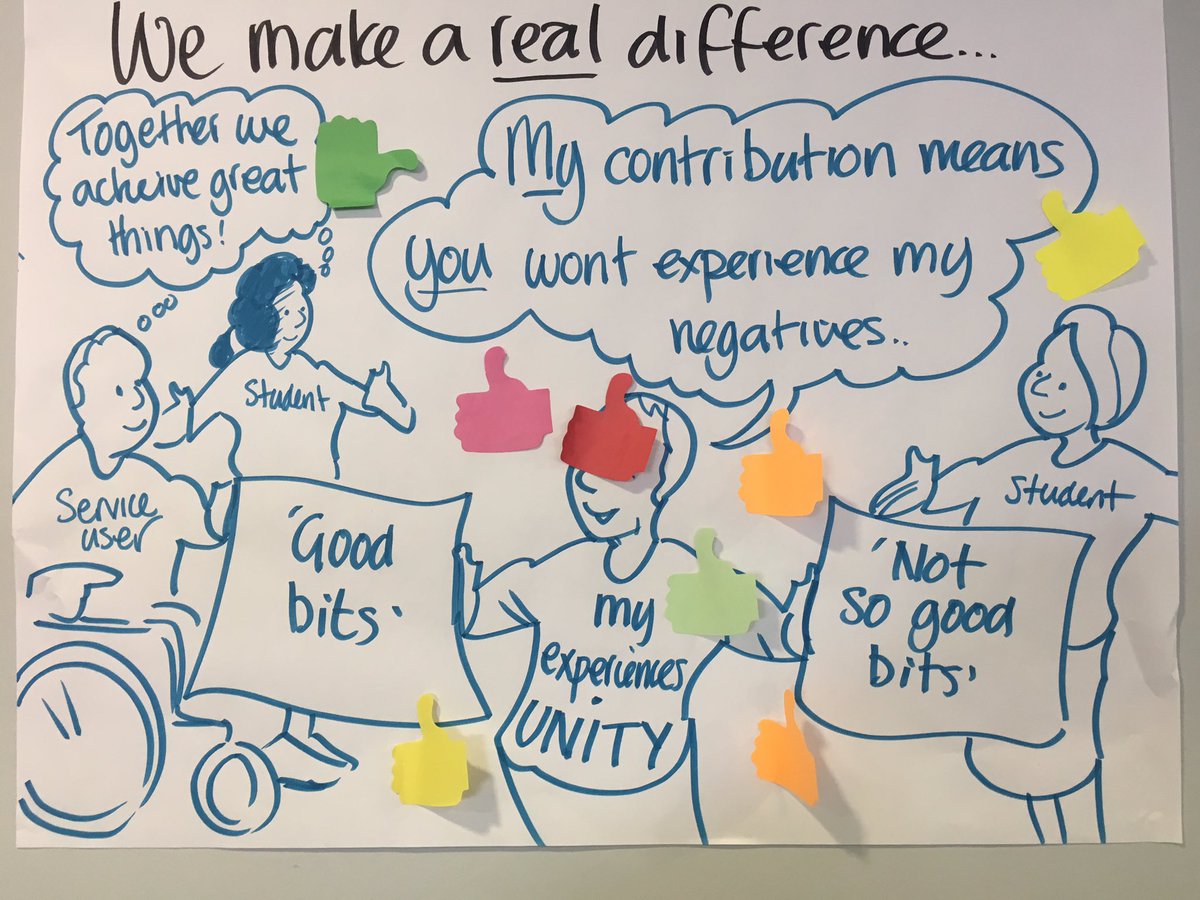 We make a real difference...
Together we
acheive great
things!
My contribution means
you wont experience my
negatives..
Student
Service
user
'Good
bits'
my
experiences
UNITY
Student
'Not
so good
bits'